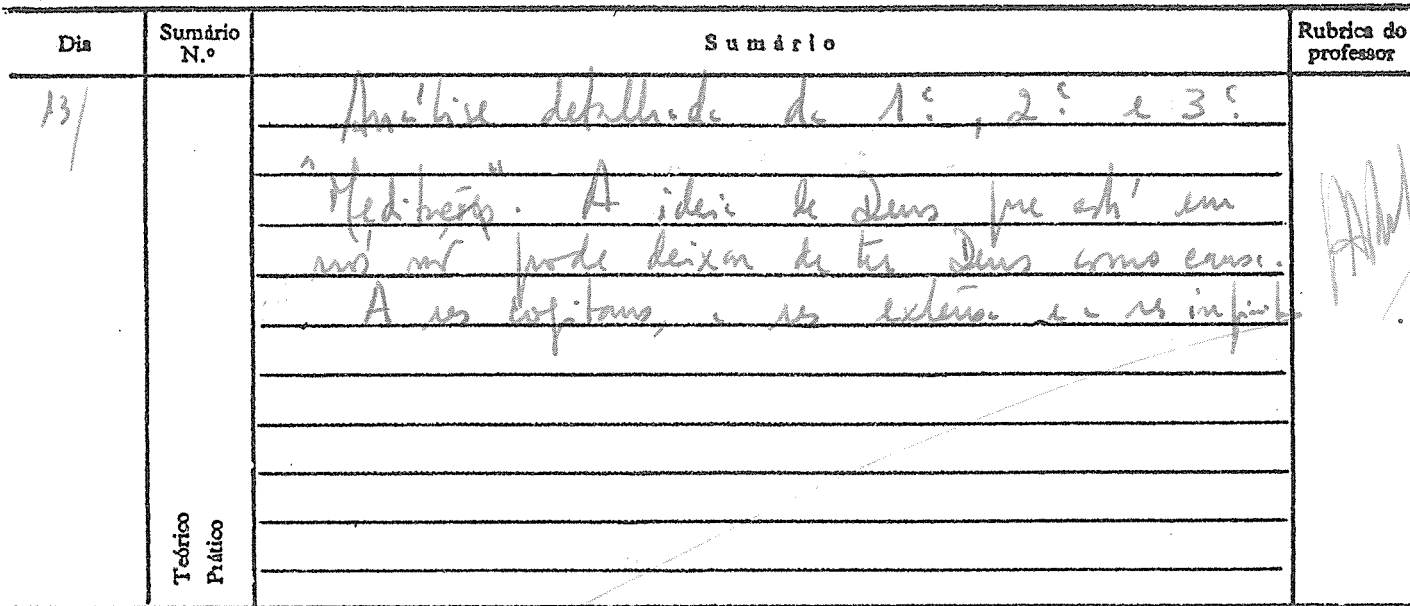 Dia
Sumário N.º
Sumário
Rubrica do professor
13/
Análise detalhada da 1ª, 2ª e 3ª
"Meditação". A ideia de Deus que está em
nós não pode deixar de ter Deus como causa.
A res cogitans, a res extensa e a res infinita
Teórico
Prático